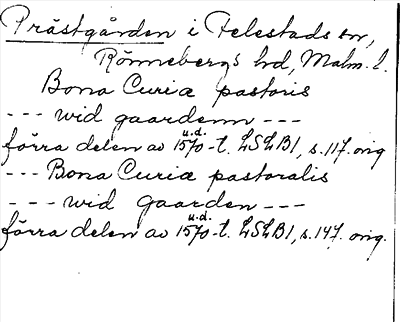 Prästgården i Felestads sn,
Rönnebergs hd, Malm. l.
Bona Curiæ pastoris
--- wid gaardenn ---
förra delen av u.d. 1570-t. LSLB1, s.117. orig
--- Bona Curiæ pastoralis
--- wid gaarden ---
förra delen av u.d. 1570-t. LSLB1, s.147. orig.